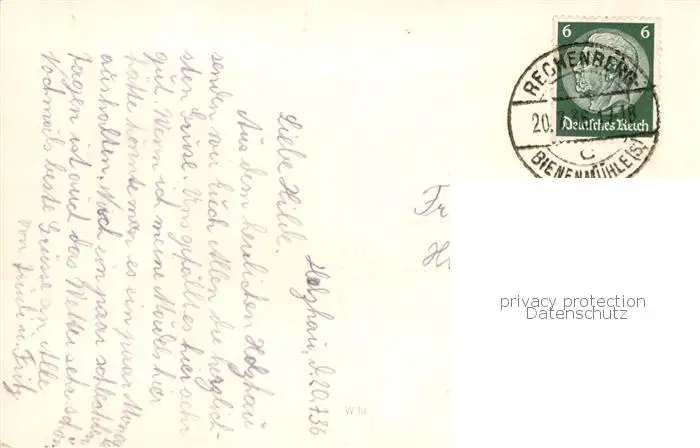 Holzhau, d. 20.7.36
Liebe Hilde.
Aus dem herrlichen Holzhau
senden wir Euch Allen die herzlich-
sten Grüsse. Uns gefällt es hier sehr
gut. Wenn ich meine Mädels hier
hätte könnte man es ein paar
aushalten. Nach ein paar schlechten
Tagen ist auch das Wetter sehr schön
Nochmals beste Grüsse an Alle
von u. Fritz
6 6
Deutsches Reich
RECHENBERG-
20. 36. 17-18
c
BIENENMÜHLE (S.)
Fr
H
privacy protection
Datenschutz